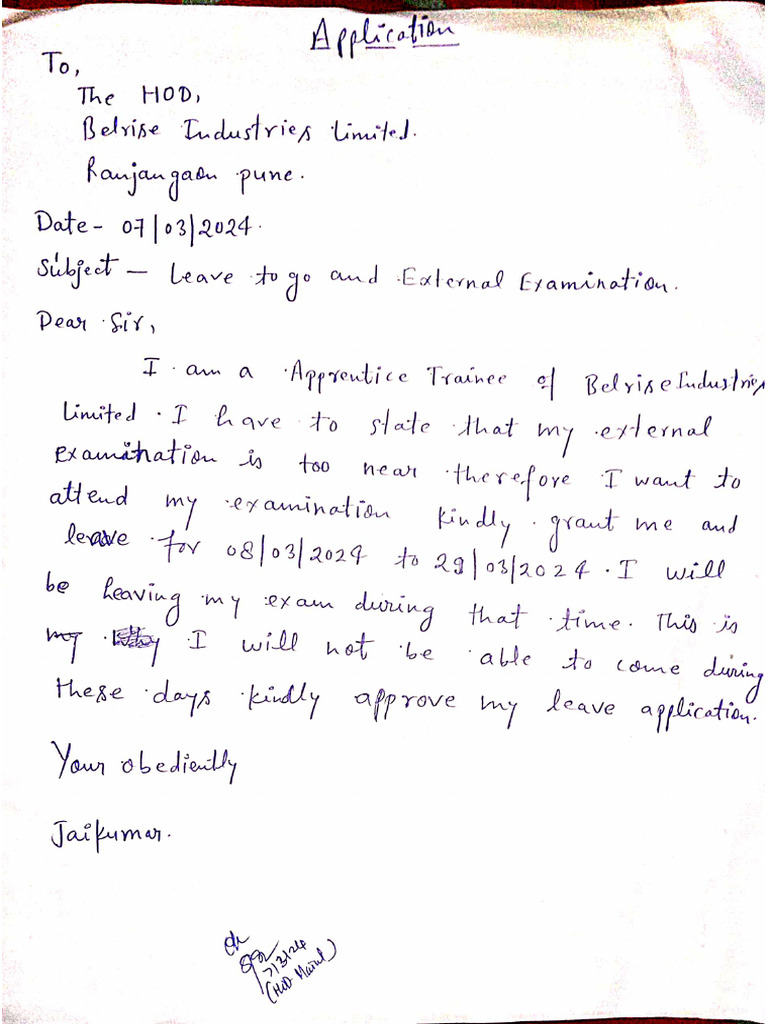 Application
To,
The HOD,
Belrise Industries Limited.
Ranjangaon pune.
Date- 07/03/2024.
Subject - Leave to go and External Examination.
Dear Sir,
I am a Apprentice Trainee of Belrise Industries
Limited. I have to state that my external
examination is too near therefore I want to
attend my examination kindly grant me and
leave for 08/03/2024 to 29/03/2024. I will
be heaving my exam during that time. This is
my I will not be able to come during
these days kindly approve my leave application.
Your obediently
Jaikumar.
7/3/24
(HOD Maint)